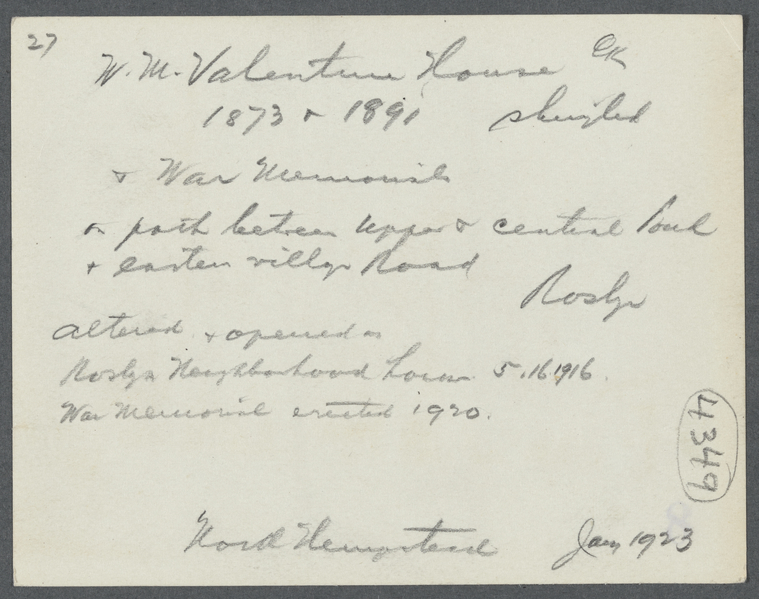 27
W. M. Valentine House OK
1873 & 1891 shingled
& War Memorial
on path between upper & central Pond
& eastern village Road
Roslyn
altered & opened as
Roslyn Neighborhood house 5.16.1916.
War Memorial erected 1920.
4349
North Hempstead Jany 1923